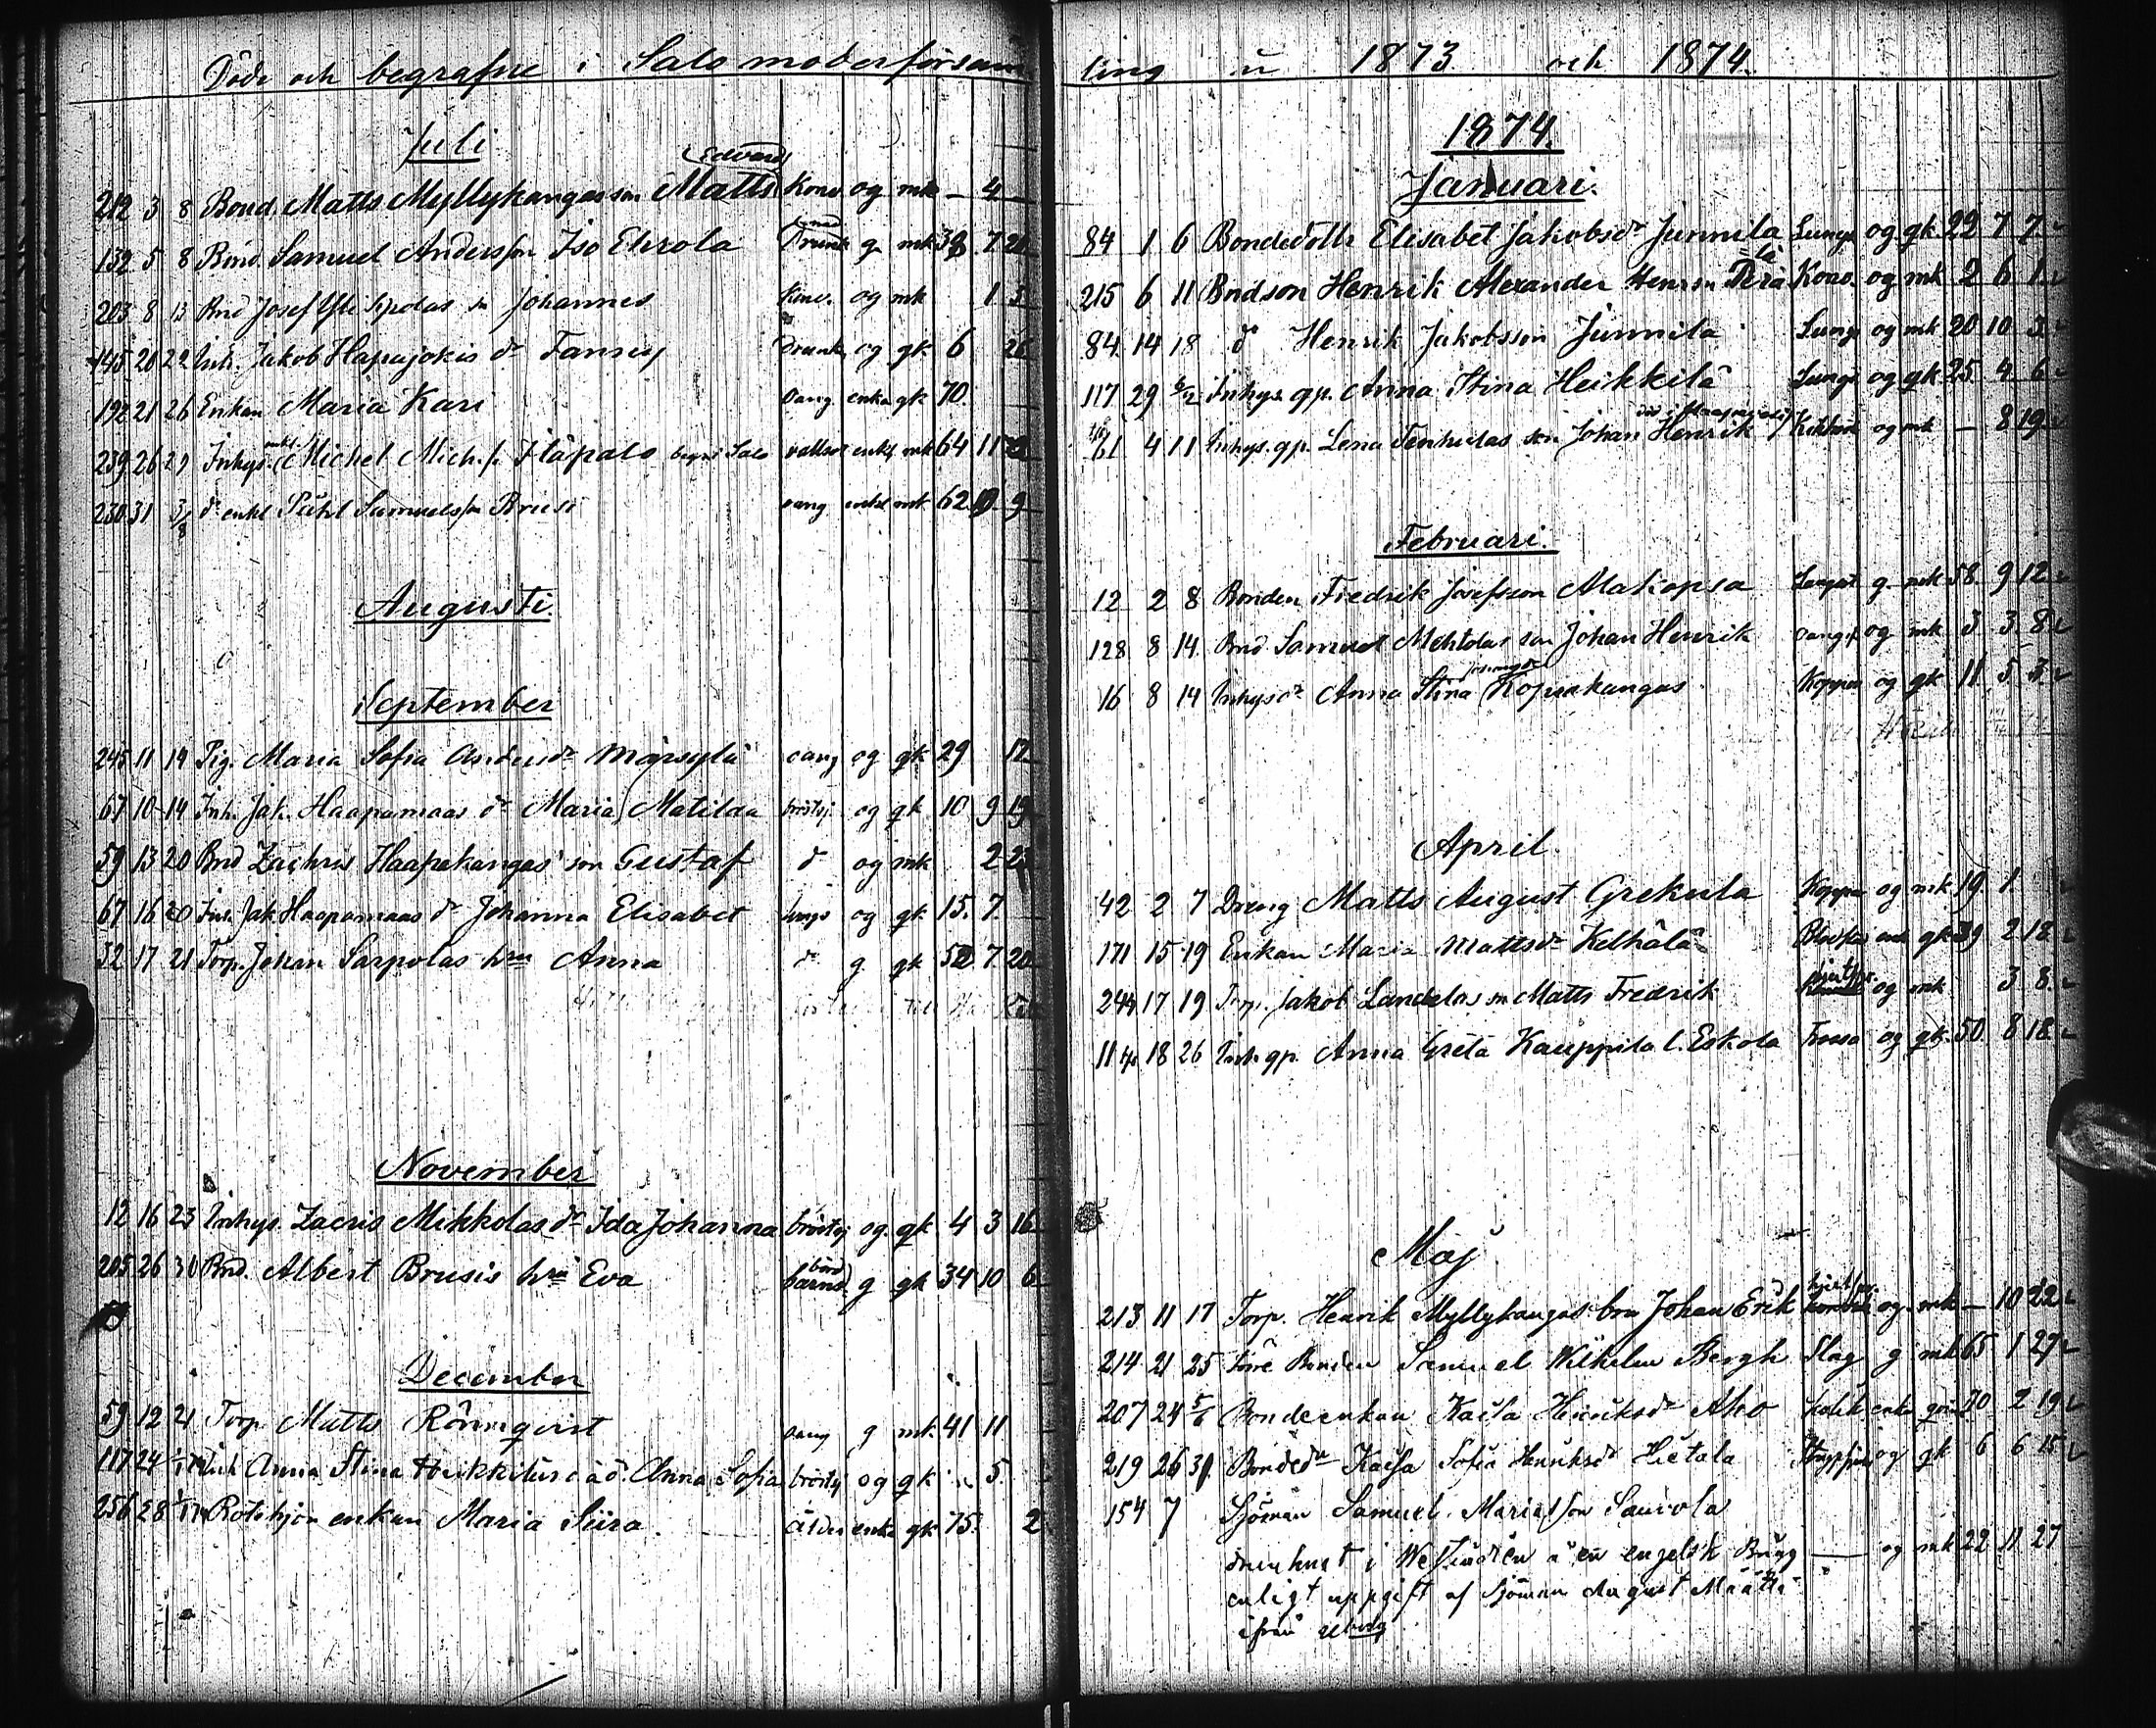 Döde och begrafne i Salo moderförsam
Juli
Edvard
212 3 8 Bond. Matts Myllykangas son Matts Konv. og mk — 4
132 5 8 Bond. Samuel Andersson Iso Ehrola Drunk g mk 38 7 20
203 8 13 Bnd Josef Yli Sipolas sn Johannes Konv. og mk 1 5
145 20 22 Inh. Jakob Hapajokis dr Fanny Drunk og gk 6 26
192 21 26 Enkan Maria Kari oang enka gk 70
239 26 29 Inhys. Michel Mich.s. Ilapalo begr i Salo vattsot enkl mk 64 11
230 31 3/8 do enkl Påhl Samuelsson Brusi oang enkl mk 62 10 9
Augusti
September
245 11 14 Pig. Maria Sofia Andersdr Mäjsylä oang og gk 29 12
67 10 14 Inh. Jak. Haapamaas dr Maria Matilda bröstsj og gk 10 9 19
59 13 20 Bnd Zachris Haapakangas son Gustaf do og mk 2 23
67 16 20 Inh. Jak. Haapamaas dr Johanna Elisabet lungs og gk 15 7
32 17 21 Torp. Johan Sarpolas hru Anna do g gk 52 7 20
November
12 16 23 Inhys. Zacris Mikkolas dr Ida Johanna bröstsj og gk 4 3 16
205 26 30 Bnd. Albert Brusis hru Eva barnsbörd g gk 34 10 6
December
59 12 21 Torp Matts Rönnqvist oang g mk 41 11
117 24 1/1 74 Inh Anna Stina Heikkiläs oä d. Anna Sofia bröstsj og gk 5
256 28 1/1 74 Rotehjon enkan Maria Siira ålder enka gk 75 2
ling u 1873 och 1874.
1874.
Januari.
84 1 6 Bondedottr Elisabet Jakobsdr Junnila Lungs og gk 22 7 7
215 6 11 Bndson Henrik Alexander Henrsn Perälä Konv. og mk 2 6 1
84 14 18 do Henrik Jakobsson Junnila Lungs og mk 20 10 3
117 29 6/2 Inhys. qp. Anna Stina Heikkilä Lungs og gk 25 4 6
61 4 11 Inhys. qp. Lena Tenhulas son Johan Henrik Kikhost og mk — 8 19
Februari.
12 2 8 Bonden Fredrik Josefsson Alakopsa Lungst g. mk 58 9 12
128 8 14 Bnd Samuel Mehtolas son Johan Henrik oang og mk 3 3 8
16 8 14 Inhysdr Anna Stina Koprakangas Koppor og gk 11 5 3
April.
42 2 7 Dreng Matts August Grekula Koppor og mk 19 1
171 15 19 Enkan Maria Mattsdr Kelhälä enk gk 39 2 18
244 17 19 Torp. Jakob Landelas sn Matts Fredrik og mk 3 8
114 18 26 Inh. qp. Anna Greta Kauppila l. Eskola Frossa og gk 50 8 18
Maj
213 11 17 Torp. Henrik Myllykangas son Johan Erik og mk — 10 22
214 21 25 Förre Bonden Samuel Wilhelm Bergh Slag g mk 65 1 27
207 24 5/6 Bondeenkan Kaisa Henriksdr Aho kolik enka qvin 70 2 19
219 26 31 Bondedr Kaisa Sofia Henriksdr Hietala Strypsjuka og gk 6 6 15
154 7 Sjöman Samuel Mariasson Sauvola
drunknat i Westindien å en engelsk Brigg — og mk 22 11 27
enligt uppgift af Sjöman August Määttä
ifrån Uleborg